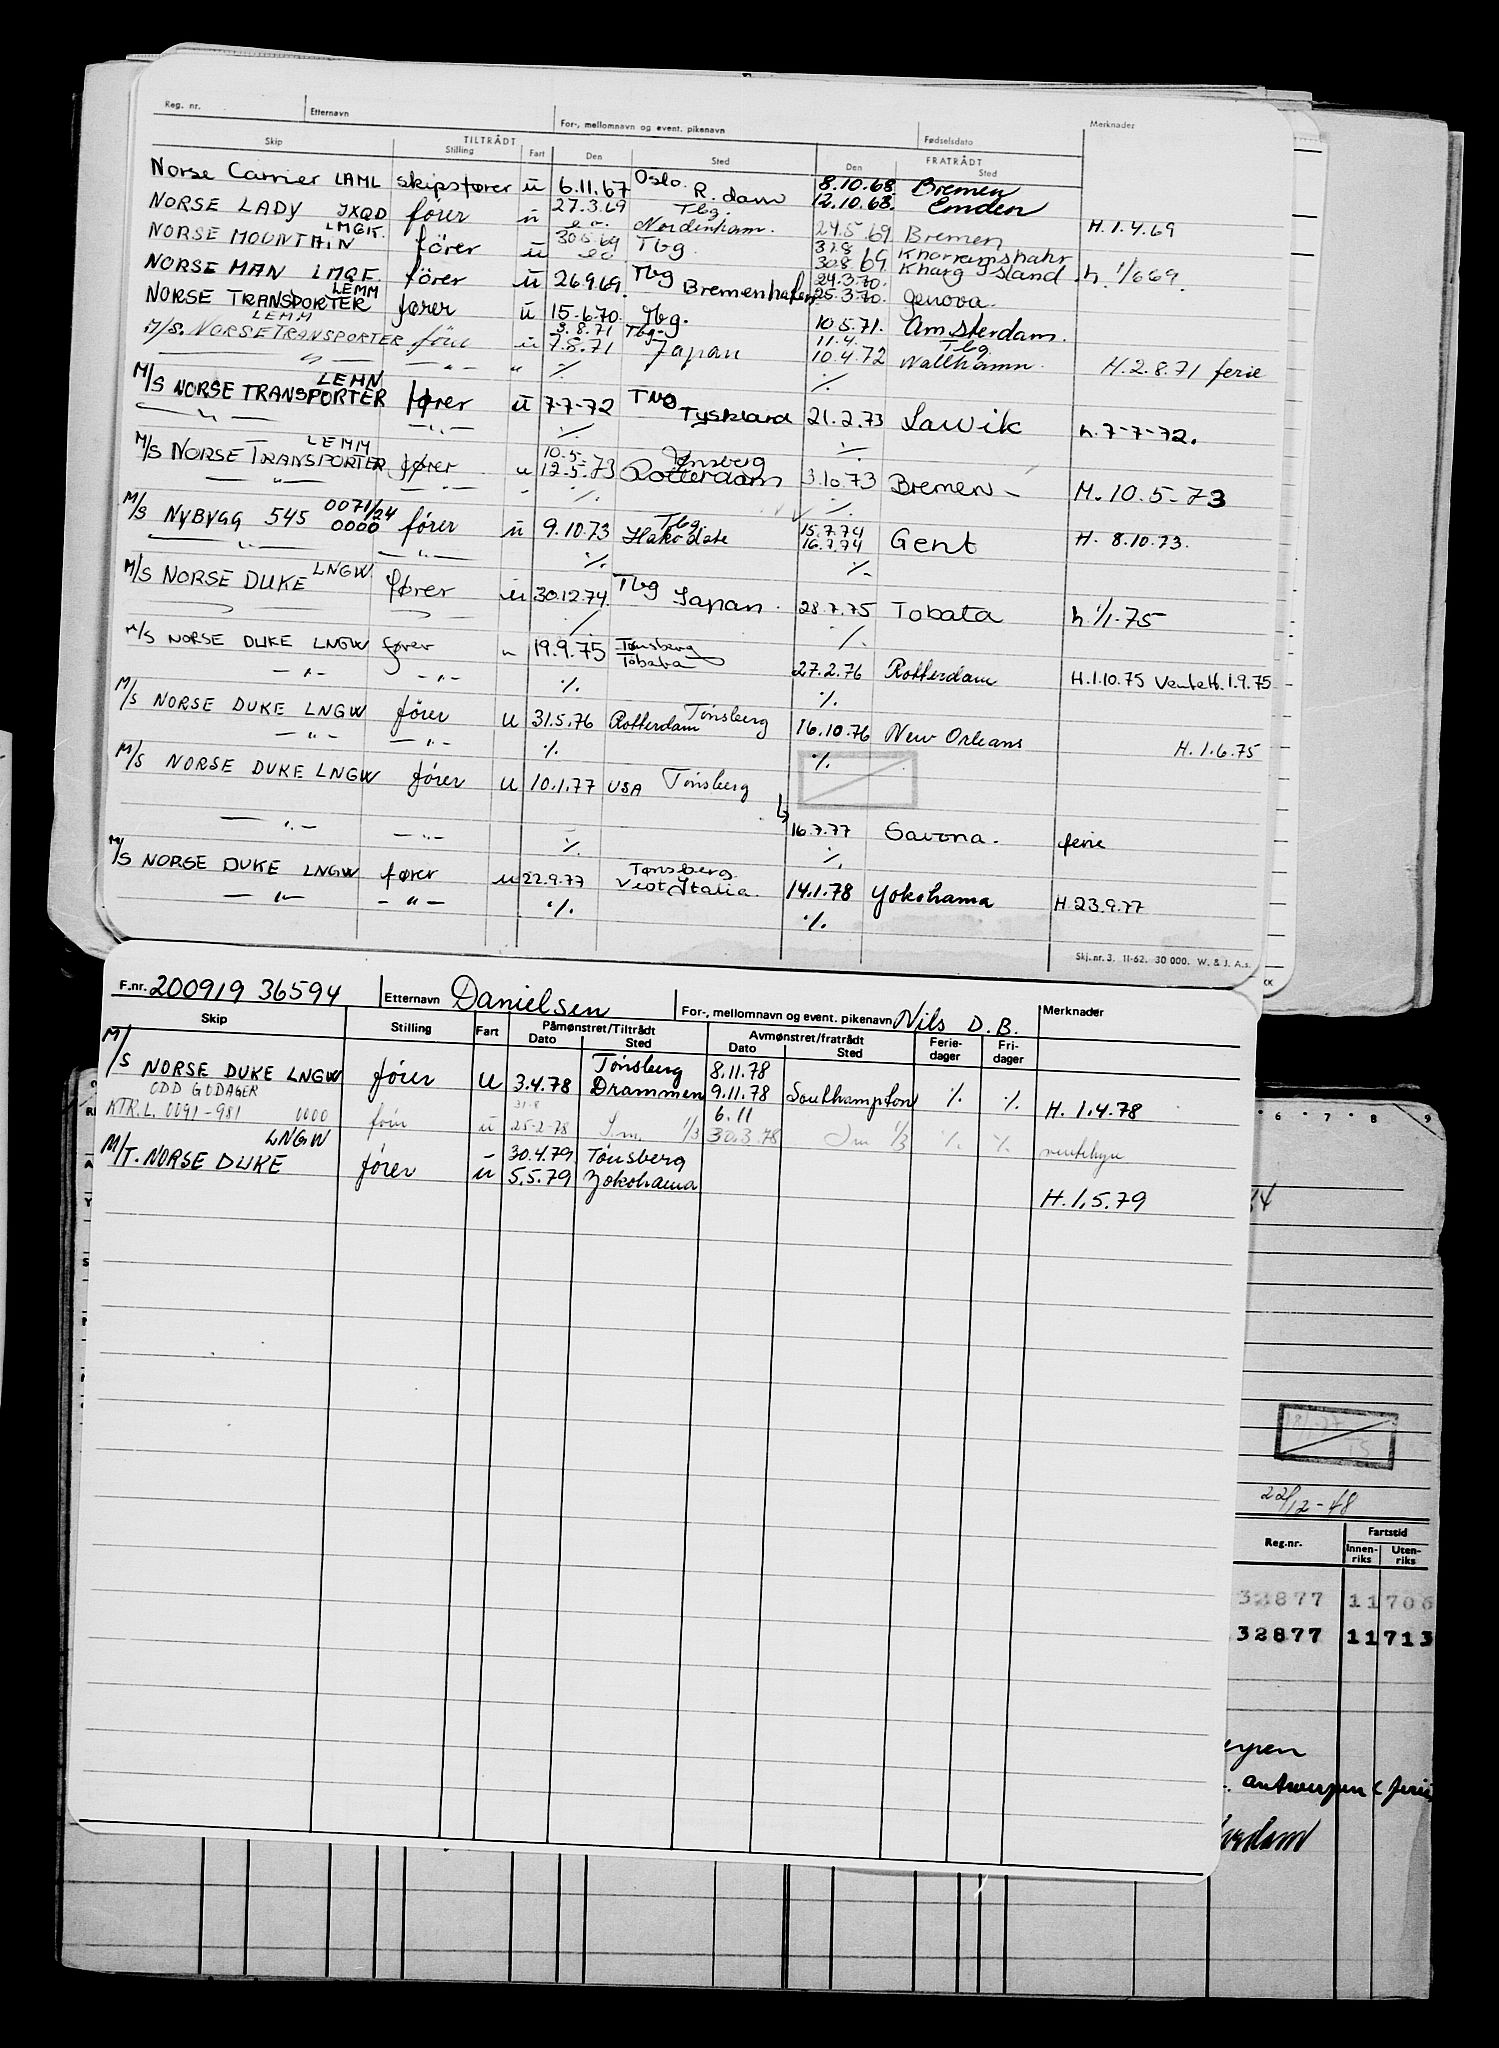 Reg. nr. Etternavn For-, mellomnavn og event. pikenavn Fødselsdato Merknader
Skip TILTRÅDT Stilling Fart Den Sted FRATRÅDT Den Sted
Norse Carrier LAML skipsfører u 6.11.67 Oslo. R.dam 8.10.68. Bremen
12.10.68. Emden
NORSE LADY JXQD fører u 27.3.69 Tbg. Nordenham. 24.5.69 Bremen H.1.4.69
NORSE MOUNTAIN LMGK. fører u 30.5.69 Tbg 31.8 Khorramshahr
30.8.69 Kharg Island h. 1/6 69.
NORSE MAN LMQF fører u 26.9.69. Tbg Bremenhafen 24.3.70.
25.3.70. Genova.
NORSE TRANSPORTER LEMM fører u 15-6.70. Tbg. 10.5.71. Amsterdam.
M/S. NORSE TRANSPORTER LEMM fører u 3.8.71 Tbg. 11.4. Tbg
— " — — " — " 7.8.71 Japan 10.4.72 Wallhamn. H.2.8.71 ferie
M/S NORSE TRANSPORTER LEMN fører u 7-7-72 Tbg Tyskland 21.2.73 Larvik h.7-7-72.
— " — — " — %. %.
M/S NORSE TRANSPORTER LEMM fører u 10.5. Tønsberg
12.5.73 Rotterdam 3.10.73 Bremen - H. 10.5-73
— " — — " — - %. %.
M/S NYBYGG 545 0071/24 0000 fører u 9.10.73 Tbg. Hakodate 15.7.74
16.7.74 Gent H. 8.10.73.
— " — — " — %. %.
M/S NORSE DUKE LNGW fører u 30.12.74. Tbg Japan. 28.7.75 Tobata h 1/1-75
%. %.
M/S NORSE DUKE LNGW fører " 19.9.75 Tønsberg Tobata 27.2.76 Rotterdam H.1.10.75 Ventett. 1.9.75
— " — — " — %. %.
M/S NORSE DUKE LNGW fører u 31.5.76 Rotterdam Tønsberg 16.10.76 New Orleans H. 1.6.75
— " — — " — %. %.
M/S NORSE DUKE LNGW fører u 10.1.77 USA Tønsberg
16.7.77 Savona. ferie
— " — — " — %. %.
M/S NORSE DUKE LNGW fører u 22.9.77 Tønsberg. Vest Italia. 14.1.78 Yokohama H.23.9.77
— " — — " — %. %.
Skj. nr. 3. 11-62. 30 000. W. & J. A.s.
F.nr. 200919 36594 Etternavn Danielsen For-, mellomnavn og event. pikenavn Nils D. B. Merknader
Skip Stilling Fart Påmønstret/Tiltrådt Dato Sted Avmønstret/fratrådt Dato Sted Ferie-dager Fri-dager
M/S NORSE DUKE LNGW fører u 3.4.78 Tønsberg Drammen 8.11.78
9.11.78 Southampton %. %. H. 1.4.78
ODD GODAGER
KTR.L. 0091-981 0000 fører u 31.8 25-2-78 1/3 6.11 30.3.78 1/3 %. %.
M/T. NORSE DUKE LNGW fører u 30.4.79 Tønsberg
5.5.79 Yokohama H.1.5.79
6 7 8 9
22/12-48
Reg.nr. Fartstid
Innen-riks Uten-riks
32877 11706
32877 11713
antwerpen ( ferie